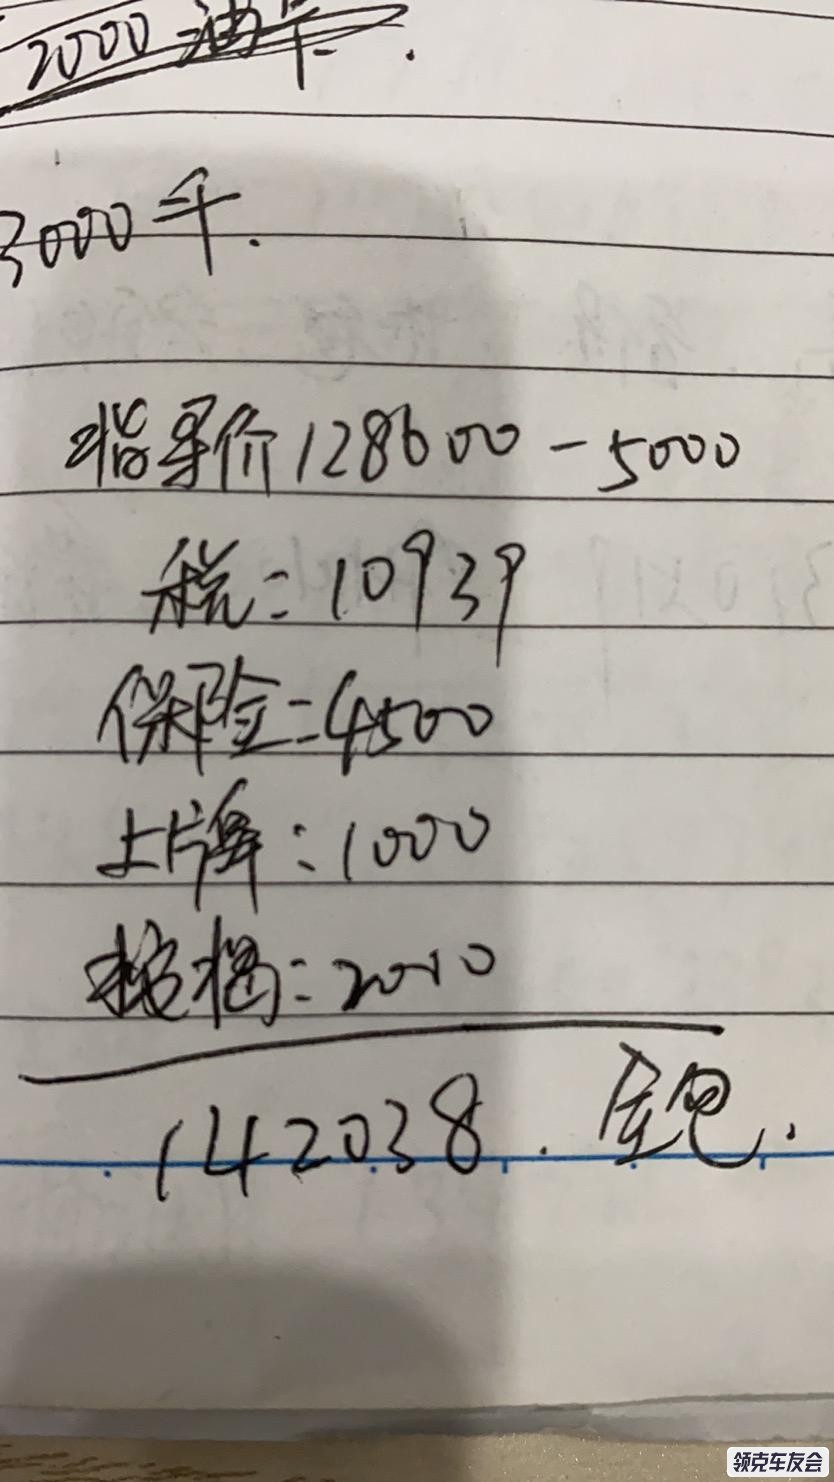 2000油卡.
3000千.
指导价128600-5000
税:10939
保险:4500
上牌:1000
按揭:2000
142038.全包.
领克车友会